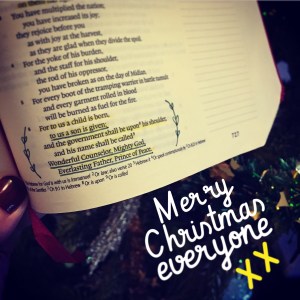 You have multiplied the nation;
you have increased its joy;
they rejoice before you
as with joy at the harvest,
as they are glad when they divide the spoil.
For the yoke of his burden,
and the staff for his shoulder,
the rod of his oppressor,
you have broken as on the day of Midian.
For every boot of the tramping warrior in battle tumult
and every garment rolled in blood
will be burned as fuel for the fire.
For to us a child is born,
to us a son is given;
and the government shall be upon his shoulder,
and his name shall be called
Wonderful Counselor, Mighty God,
Everlasting Father, Prince of Peace.
Merry
Christmas
everyone
XX